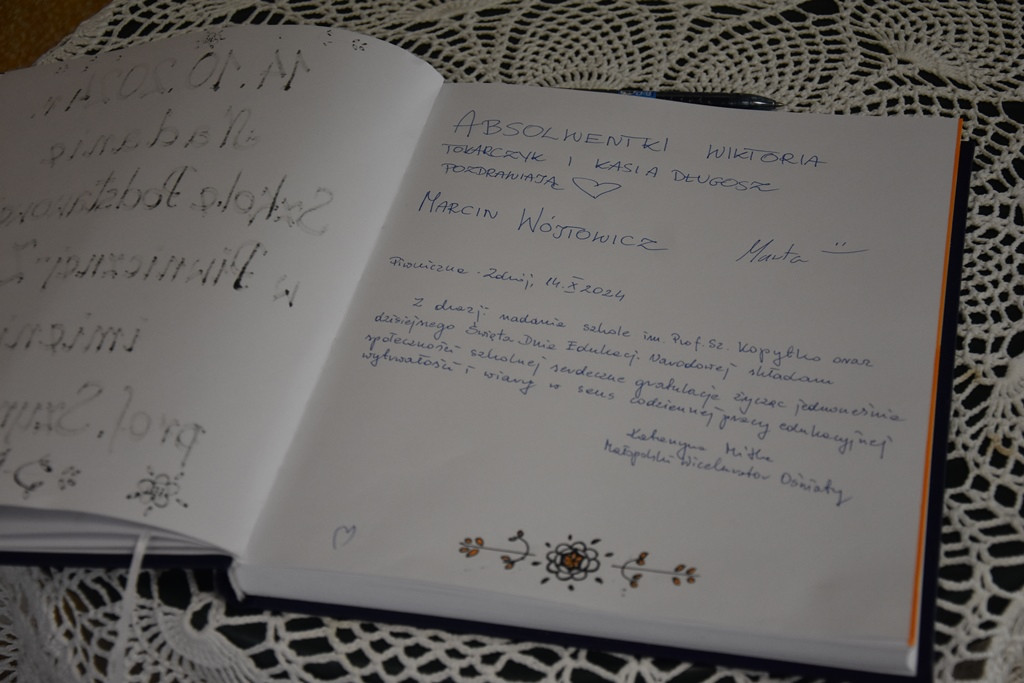 14.10.2024r.
Nadanie
Szkole Podstawowej
w Piwnicznej-Z
imieni
prof. Szym
ABSOLWENTKI WIKTORIA
TOKARCZYK I KASIA DŁUGOSZ
POZDRAWIAJĄ
MARCIN WÓJTOWICZ
Marta
Piwniczna-Zdrój, 14.X.2024
Z okazji nadania szkole im. Prof. Sz. Kopytko oraz
dzisiejnego Święta Dnia Edukacji Narodowej składam
społeczności szkolnej serdeczne gratulacje życząc jednocześnie
wytrwałości i wiary w sens codziennej pracy edukacyjnej
Katarzyna Mitka
Małopolski Wicekurator Oświaty